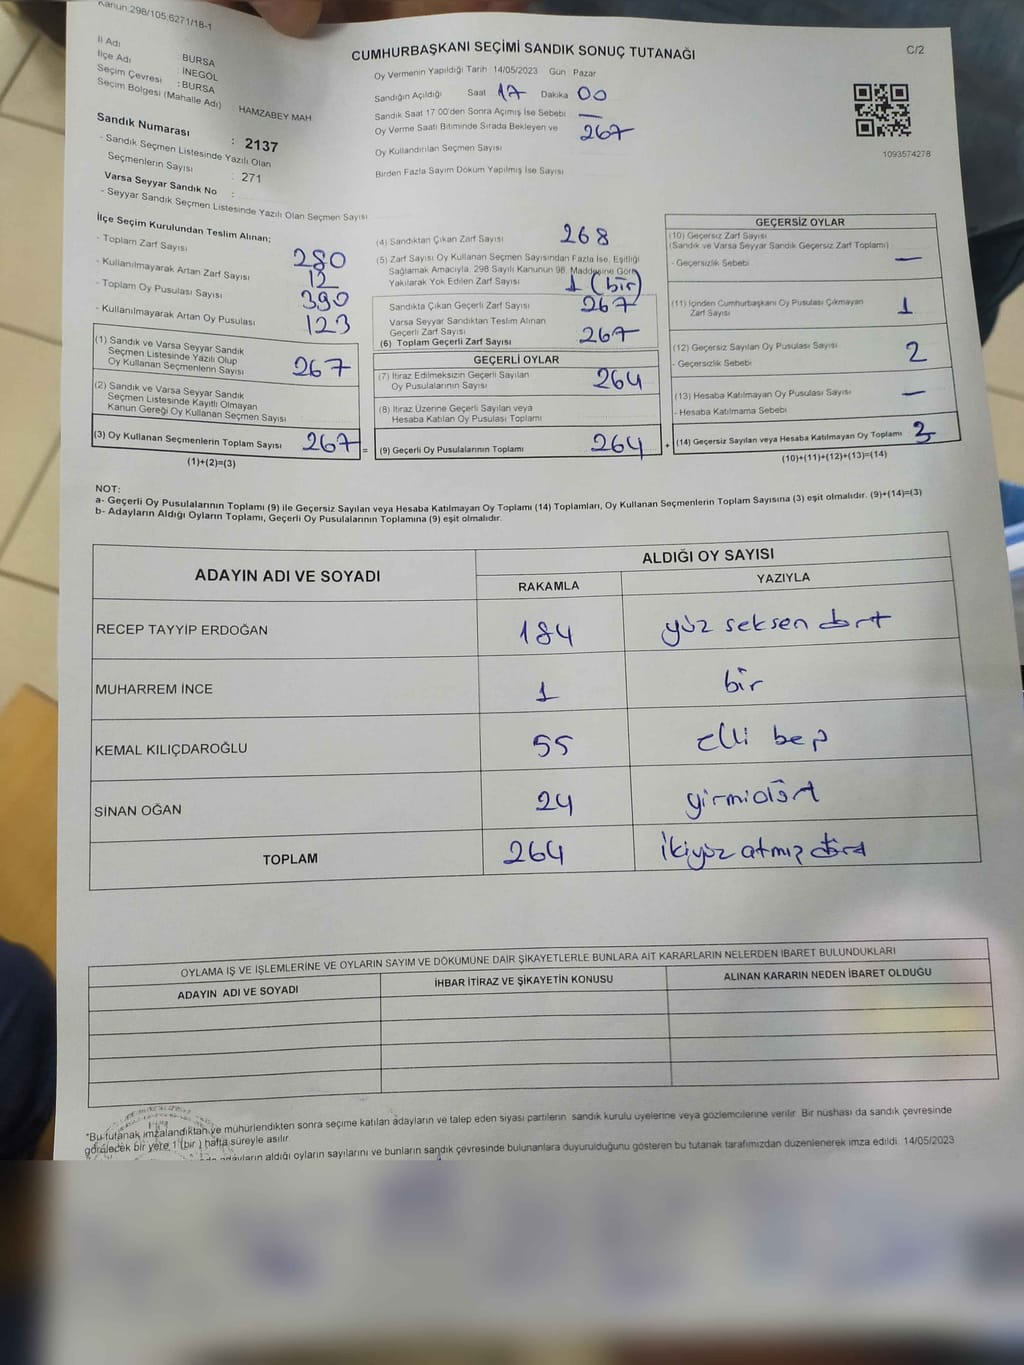 Kanun:298/105,6271/18-1
C/2
CUMHURBAŞKANI SEÇİMİ SANDIK SONUÇ TUTANAĞI
İl Adı : BURSA
İlçe Adı : İNEGÖL
Seçim Çevresi : BURSA
Seçim Bölgesi (Mahalle Adı) HAMZABEY MAH
Sandık Numarası : 2137
- Sandık Seçmen Listesinde Yazılı Olan
Seçmenlerin Sayısı : 271
Varsa Seyyar Sandık No :
- Seyyar Sandık Seçmen Listesinde Yazılı Olan Seçmen Sayısı
Oy Vermenin Yapıldığı Tarih 14/05/2023 Gün Pazar
Sandığın Açıldığı Saat 17 Dakika 00
Sandık Saat 17 00'den Sonra Açımış İse Sebebi —
Oy Verme Saati Bitiminde Sırada Bekleyen ve 267
Oy Kullandırılan Seçmen Sayısı
Birden Fazla Sayım Döküm Yapılmış İse Sayısı
1093574278
İlçe Seçim Kurulundan Teslim Alınan;
- Toplam Zarf Sayısı 280
- Kullanılmayarak Artan Zarf Sayısı 12
- Toplam Oy Pusulası Sayısı 390
- Kullanılmayarak Artan Oy Pusulası 123
(1) Sandık ve Varsa Seyyar Sandık
Seçmen Listesinde Yazılı Olup
Oy Kullanan Seçmenlerin Sayısı 267
(2) Sandık ve Varsa Seyyar Sandık
Seçmen Listesinde Kayıtlı Olmayan
Kanun Gereği Oy Kullanan Seçmen Sayısı
(3) Oy Kullanan Seçmenlerin Toplam Sayısı 267 =
(1)+(2)=(3)
(4) Sandıktan Çıkan Zarf Sayısı 268
(5) Zarf Sayısı Oy Kullanan Seçmen Sayısından Fazla İse, Eşitliği
Sağlamak Amacıyla, 298 Sayılı Kanunun 98. Maddesine Göre
Yakılarak Yok Edilen Zarf Sayısı 1 (bir)
Sandıkta Çıkan Geçerli Zarf Sayısı 267
Varsa Seyyar Sandıktan Teslim Alınan
Geçerli Zarf Sayısı
(6) Toplam Geçerli Zarf Sayısı 267
GEÇERLİ OYLAR
(7) İtiraz Edilmeksizin Geçerli Sayılan
Oy Pusulalarının Sayısı 264
(8) İtiraz Üzerine Geçerli Sayılan veya
Hesaba Katılan Oy Pusulası Toplamı
(9) Geçerli Oy Pusulalarının Toplamı 264 +
GEÇERSİZ OYLAR
(10) Geçersiz Zarf Sayısı
(Sandık ve Varsa Seyyar Sandık Geçersiz Zarf Toplamı)
- Geçersizlik Sebebi —
(11) İçinden Cumhurbaşkanı Oy Pusulası Çıkmayan
Zarf Sayısı 1
(12) Geçersiz Sayılan Oy Pusulası Sayısı 2
- Geçersizlik Sebebi
(13) Hesaba Katılmayan Oy Pusulası Sayısı —
- Hesaba Katılmama Sebebi
(14) Geçersiz Sayılan veya Hesaba Katılmayan Oy Toplamı 3
(10)+(11)+(12)+(13)=(14)
NOT:
a- Geçerli Oy Pusulalarının Toplamı (9) ile Geçersiz Sayılan veya Hesaba Katılmayan Oy Toplamı (14) Toplamları, Oy Kullanan Seçmenlerin Toplam Sayısına (3) eşit olmalıdır. (9)+(14)=(3)
b- Adayların Aldığı Oyların Toplamı, Geçerli Oy Pusulalarının Toplamına (9) eşit olmalıdır.
ADAYIN ADI VE SOYADI ALDIĞI OY SAYISI
RAKAMLA YAZIYLA
RECEP TAYYİP ERDOĞAN 184 yüz seksen dört
MUHARREM İNCE 1 bir
KEMAL KILIÇDAROĞLU 55 elli beş
SİNAN OĞAN 24 yirmidört
TOPLAM 264 ikiyüz atmış dört
OYLAMA İŞ VE İŞLEMLERİNE VE OYLARIN SAYIM VE DÖKÜMÜNE DAİR ŞİKAYETLERLE BUNLARA AİT KARARLARIN NELERDEN İBARET BULUNDUKLARI
ADAYIN ADI VE SOYADI İHBAR İTİRAZ VE ŞİKAYETİN KONUSU ALINAN KARARIN NEDEN İBARET OLDUĞU
*Bu tutanak imzalandıktan ve mühürlendikten sonra seçime katılan adayların ve talep eden siyasi partilerin sandık kurulu üyelerine veya gözlemcilerine verilir. Bir nüshası da sandık çevresinde
görülecek bir yere 1 (bir ) hafta süreyle asılır.
adayların aldığı oyların sayılarını ve bunların sandık çevresinde bulunanlara duyurulduğunu gösteren bu tutanak tarafımızdan düzenlenerek imza edildi. 14/05/2023